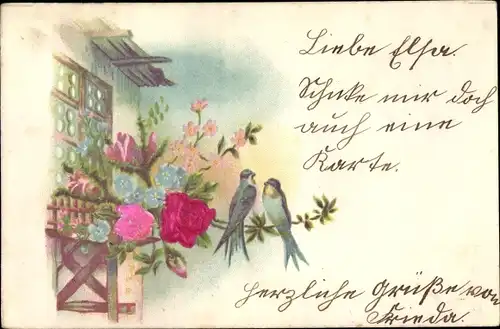 Liebe Elsa.
Schike mir doch
auch eine
Karte.
herzliche Grüße von
Frieda.